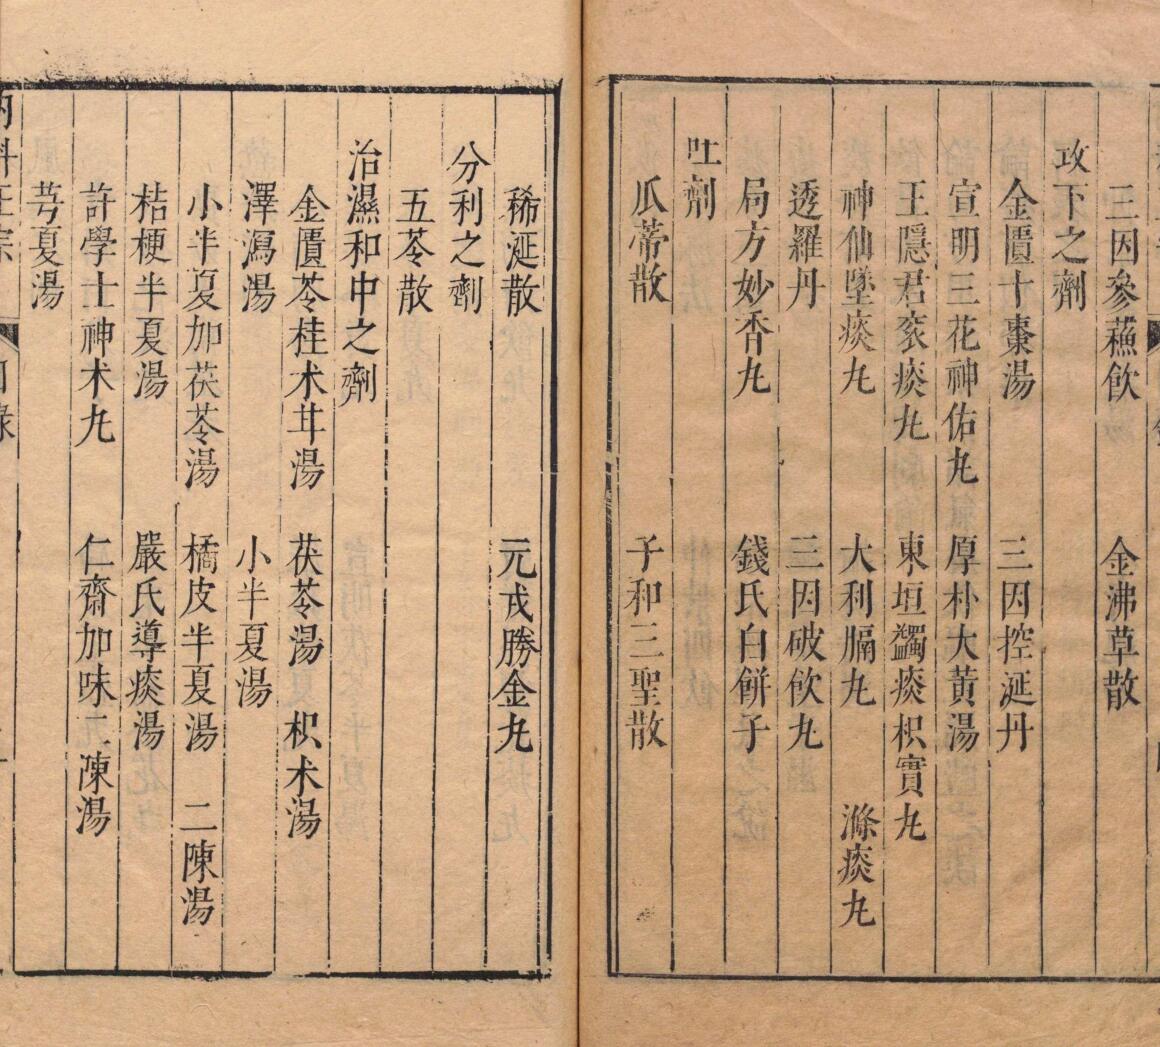 三因參蘓飲 金沸草散
攻下之劑
金匱十棗湯 三因控涎丹
宣明三花神佑丸 厚朴大黃湯
王隱君衮痰丸 東垣蠲痰枳實丸
神仙墜痰丸 大利膈丸 滌痰丸
透羅丹 三因破飲丸
局方妙香丸 錢氏白餅子
吐劑
瓜蒂散 子和三聖散
稀涎散 元戎勝金丸
分利之劑
五苓散
治濕和中之劑
金匱苓桂术甘湯 茯苓湯 枳术湯
澤瀉湯 小半夏湯
小半夏加茯苓湯 橘皮半夏湯 二陳湯
桔梗半夏湯 嚴氏導痰湯
許學士神术丸 仁齋加味二陳湯
芎夏湯